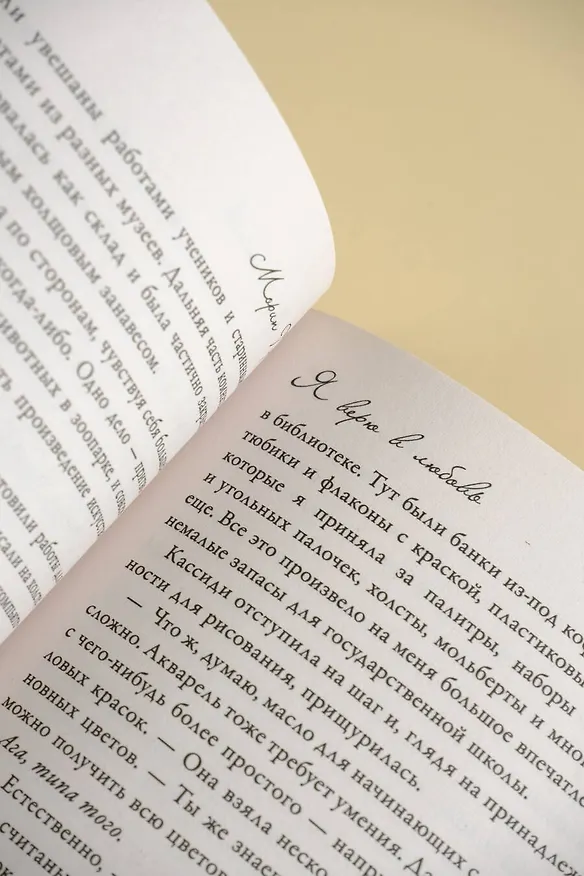 ли увешаны работами учеников и старинн
тами из разных музеев. Дальняя часть комн
валась как склад и была частично закр
ым холщовым занавесом.
а по сторонам, чувствуя себя больш
когда-либо. Одно дело — про
животных в зоопарке, и совс
ть произведение искусс
товили работы
Морин
Я верю в любовь
в библиотеке. Тут были банки из-под кор
тюбики и флаконы с краской, пластиковы
которые я приняла за палитры, наборы
и угольных палочек, холсты, мольберты и мно
еще. Все это произвело на меня большое впечатл
немалые запасы для государственной школы.
Кассиди отступила на шаг и, глядя на принадлеж
ности для рисования, прищурилась.
— Что ж, думаю, масло для начинающих с
сложно. Акварель тоже требует умения. Да
с чего-нибудь более простого — напри
ловых красок. — Она взяла неско
новных цветов. — Ты же знае
можно получить всю цветов
Ага, типа того.
Естественно,
считаны